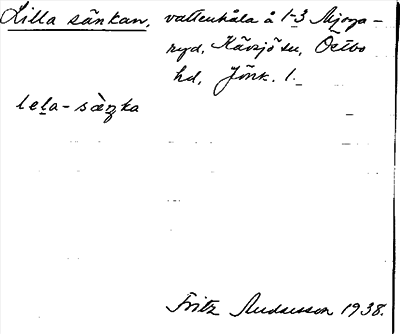 Lilla sänkan, vattenhåla å 1-3 Mjoga-
ryd, Kävsjö sn, Östbo
hd, Jönk. l.
lela-sàŋka
Fritz Andersson 1938.